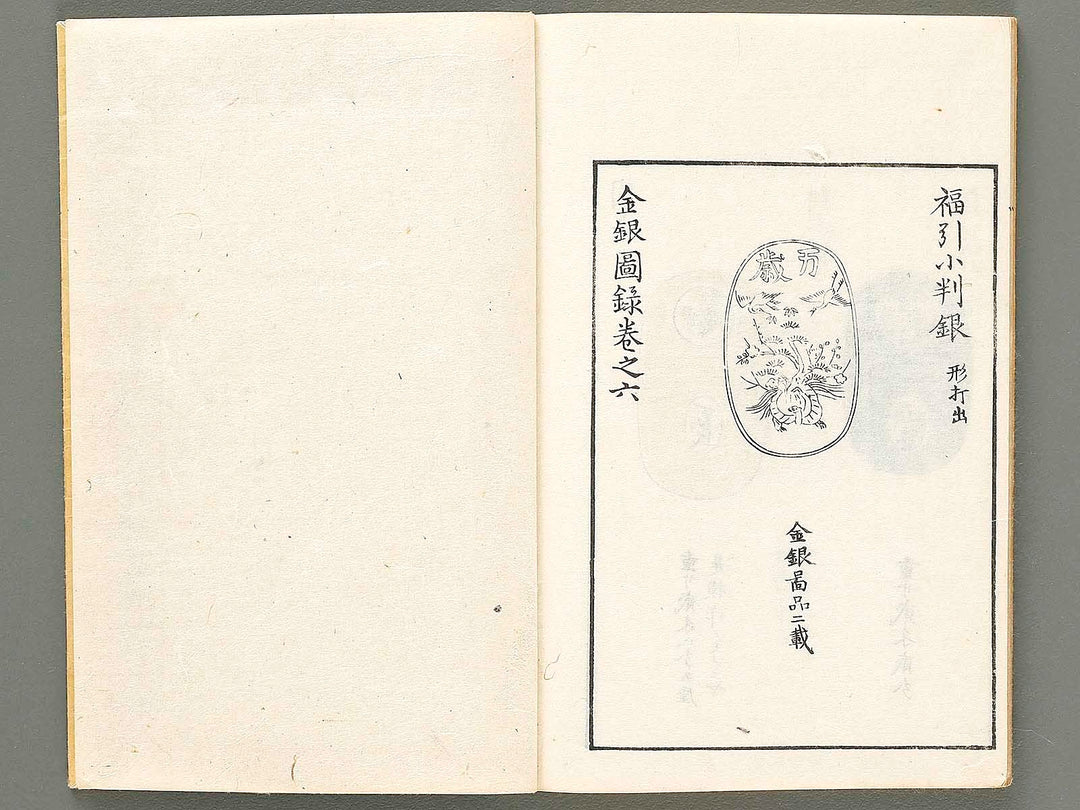 福引小判銀 形打出
万歳
金銀啚品ニ載
金銀圖録卷之六